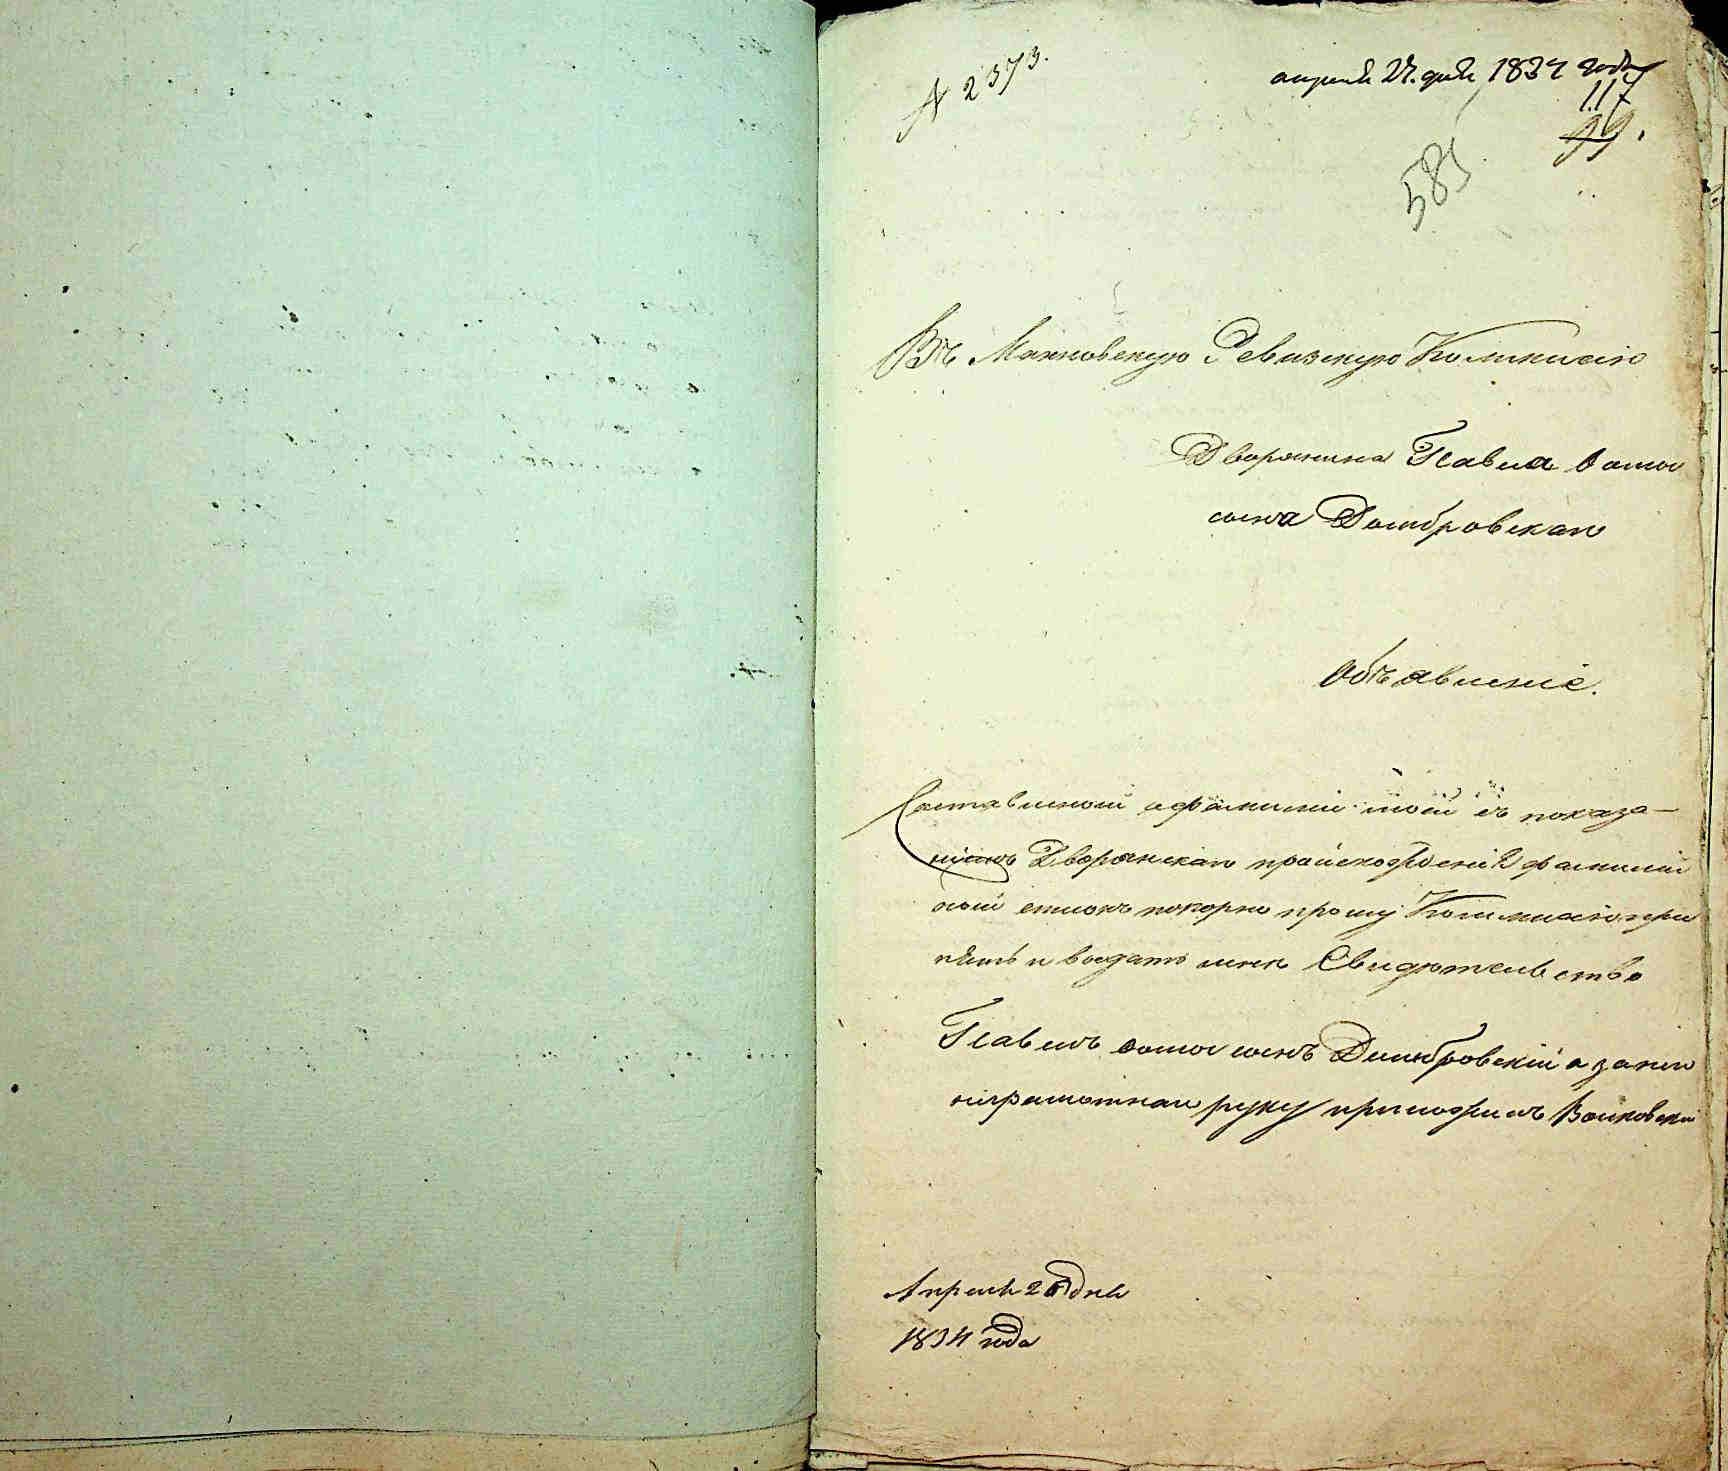 № 2373.
апреля 27. дня 1834 года
117
99.
585
Въ Махновскую Ревизскую Коммисію
Дворянина Павла Фомы
сына Домбровскаго
Объявленіе.
Составленой о фамиліи моей съ показа-
ніемъ Дворянскаго происхожденія фамилій
ной списокъ покорно прошу Коммисію при
нять и выдать мнѣ Свидѣтельство
Павелъ Фомы сынъ Домбровскій а за него
неграмотнаго руку приложилъ
Апреля 26 дня
1834 года